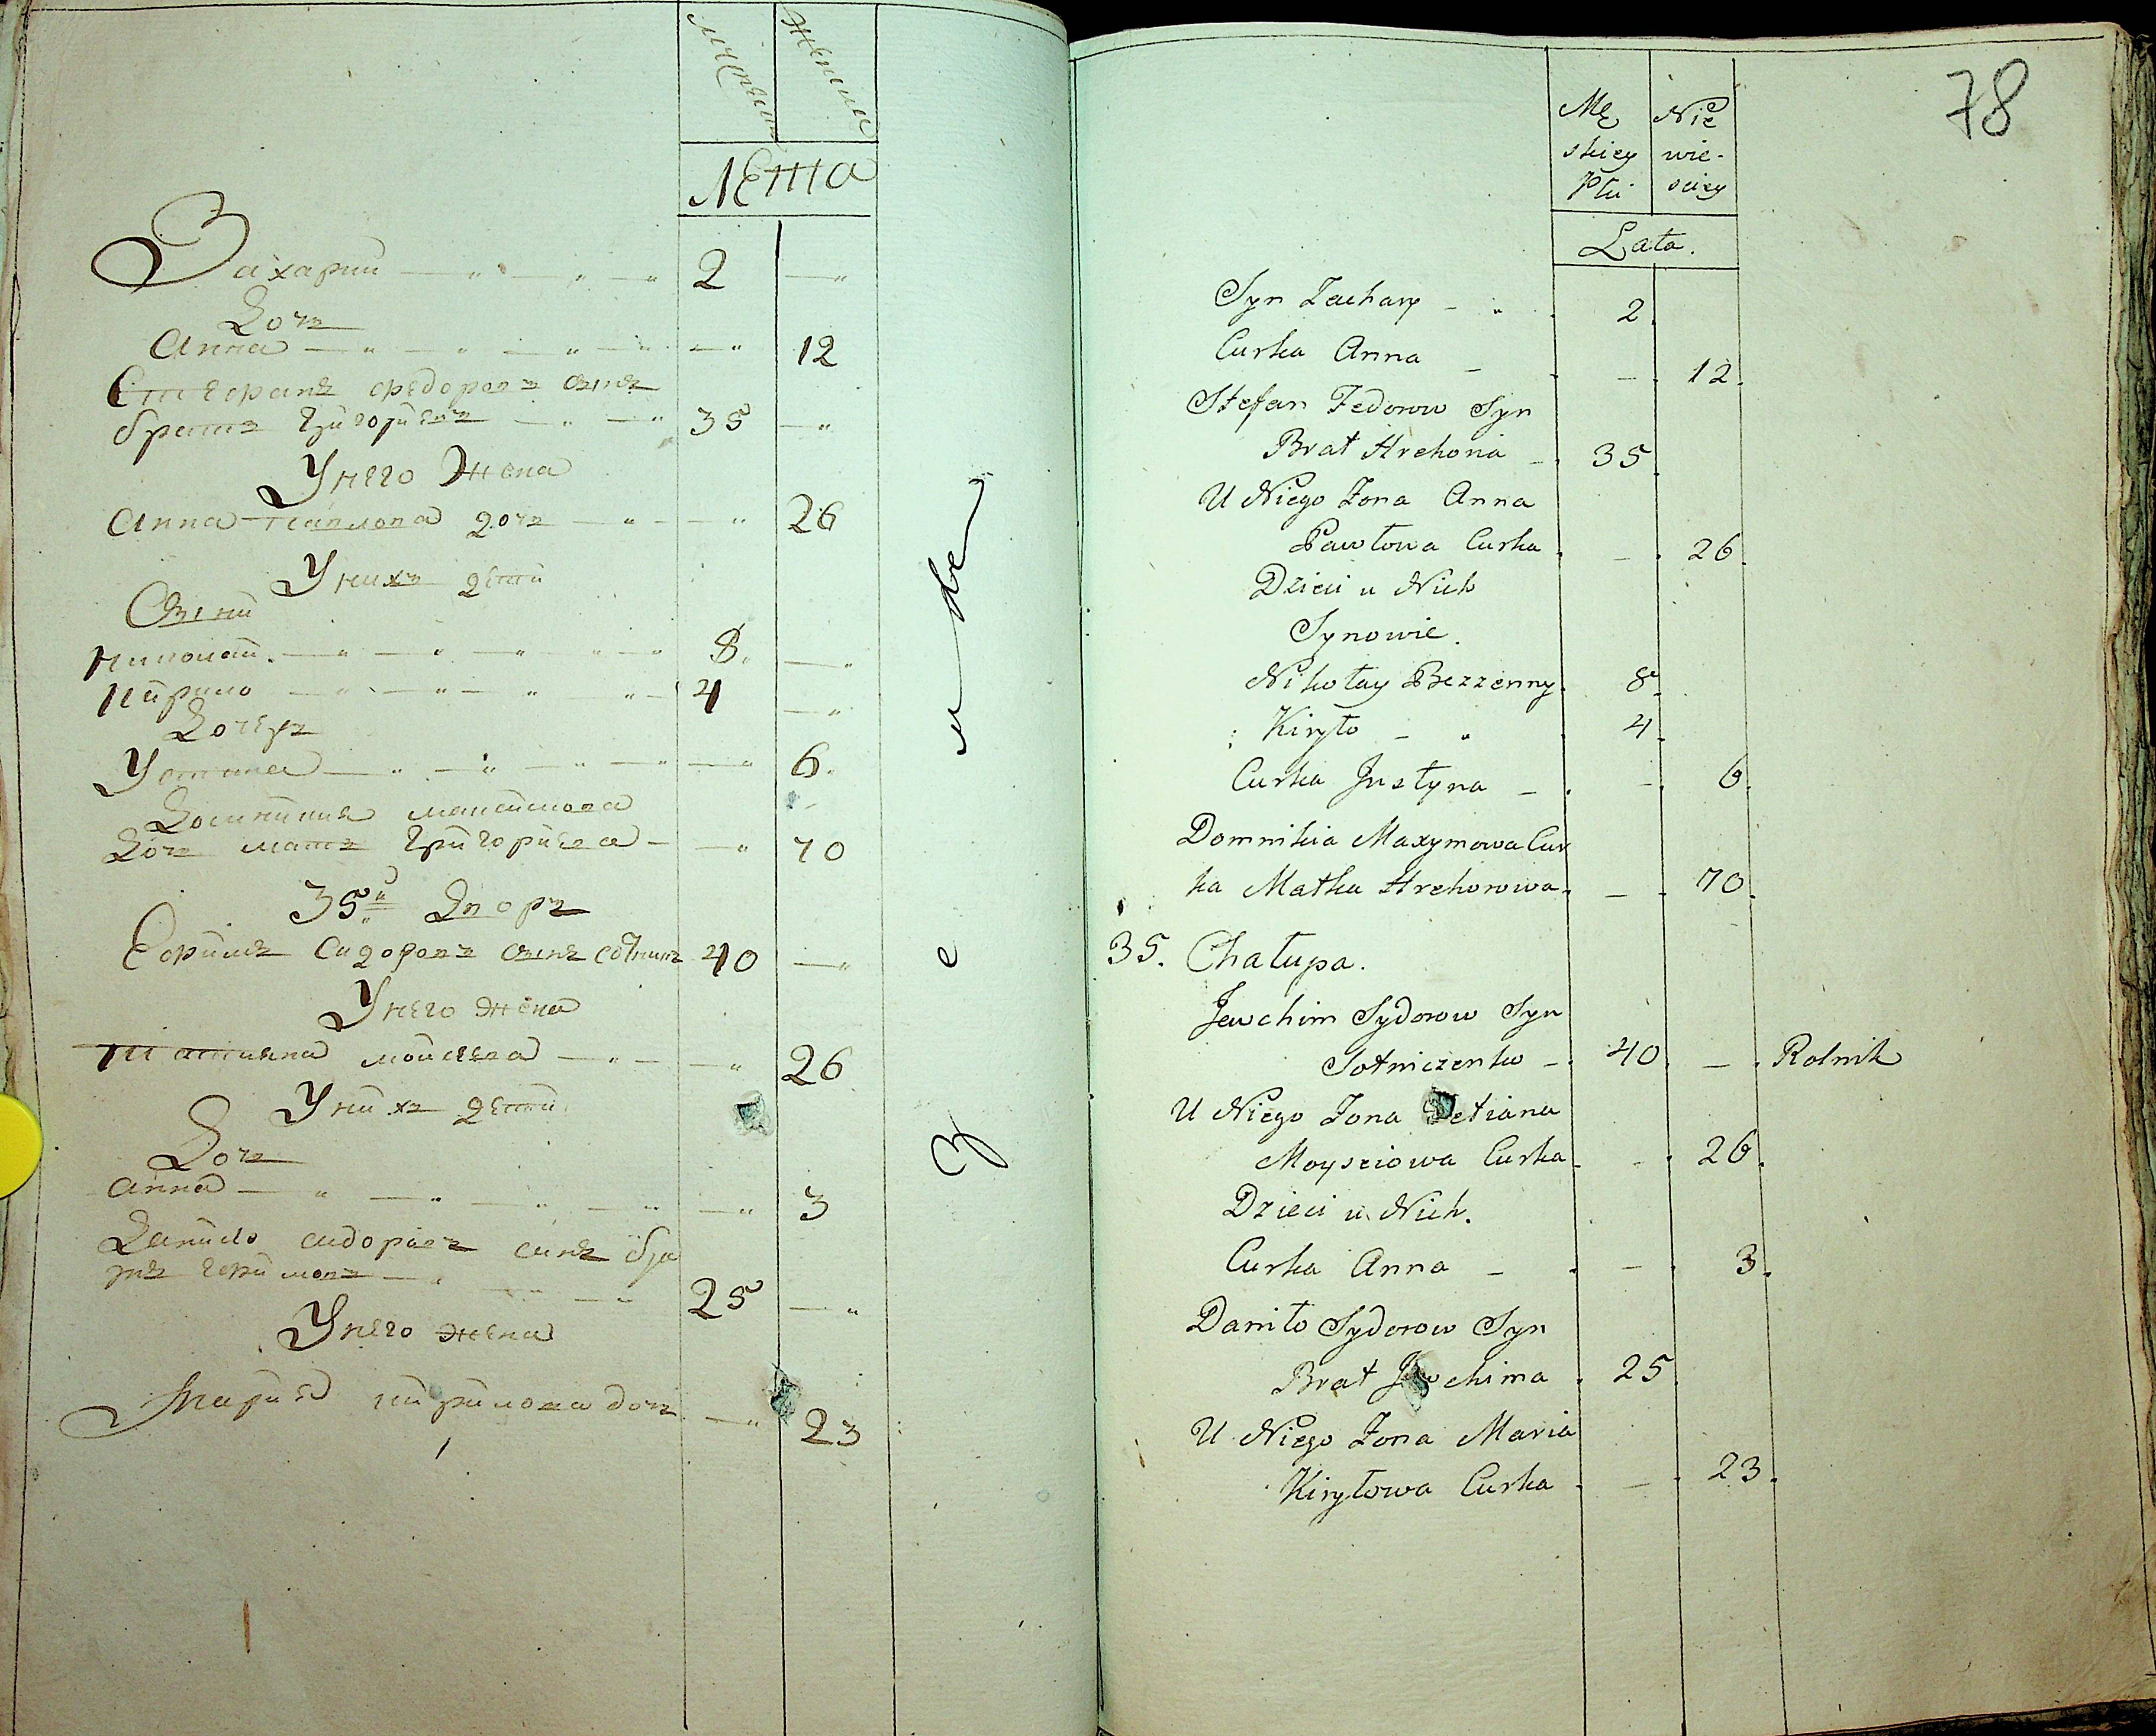 мужеска
женска
Лета
Захарии 2
Доч
Анна 12
Стефанъ Федоровъ сынъ
братъ Григориевъ 35
У него жена
Анна Павлова доч 26
У нихъ дети
Сыны
Николай 8
Кирило 4
Дочерь
Устина 6
Домникия Максимова
доч мать Григориева 70
35й Дворъ
Ефимъ Сидоровъ сынъ сотник 40
У него жена
Татияна Моисеева 26
У нихъ дети
Доч
Анна 3
Данило Сидоровъ синъ бра
Ефимовъ 25
У него жена
Мария Кирилова доч 23
78
Mę Nie
skiey wie-
Płci sciey
Lata.
Syn Zachary 2
Curka Anna 12.
Stefan Fedorow Syn
Brat Hrehoria 35
U Niego Zona Anna
Pawłowa Curka 26.
Dzieci u Nich
Synowie.
Nikołay Bezzenny 8
Kiryło 4
Curka Justyna 6
Domnikia Maxymowa Cur
ka Matka Hrehorowa 70.
35. Chałupa.
Jewchim Sydorow Syn
Sotniczenko 40 Rolnik
U Niego Zona Tetiana
Moysciowa Curka 26.
Dzieci u Nich.
Curka Anna 3.
Daniło Sydorow Syn
Brat Jewchima 25
U Niego Zona Maria
Kiryłowa Curka 23.